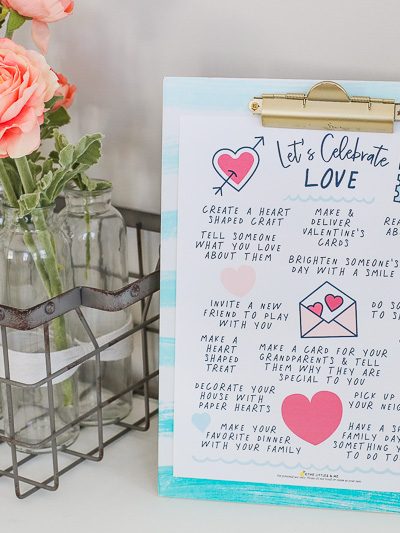 Let's Celebrate
LOVE
CREATE A HEART
SHAPED CRAFT
MAKE &
DELIVER
VALENTINE'S
CARDS
TELL SOMEONE
WHAT YOU LOVE
ABOUT THEM
BRIGHTEN SOMEONE'S
DAY WITH A SMILE
INVITE A NEW
FRIEND TO PLAY
WITH YOU
DO
TO
MAKE A
HEART
SHAPED
TREAT
MAKE A CARD FOR YOUR
GRANDPARENTS & TELL
THEM WHY THEY ARE
SPECIAL TO YOU
DECORATE YOUR
HOUSE WITH
PAPER HEARTS
PICK UP
YOUR
MAKE YOUR
FAVORITE DINNER
WITH YOUR FAMILY
HAVE A
FAMILY
SOMETHING
TO DO